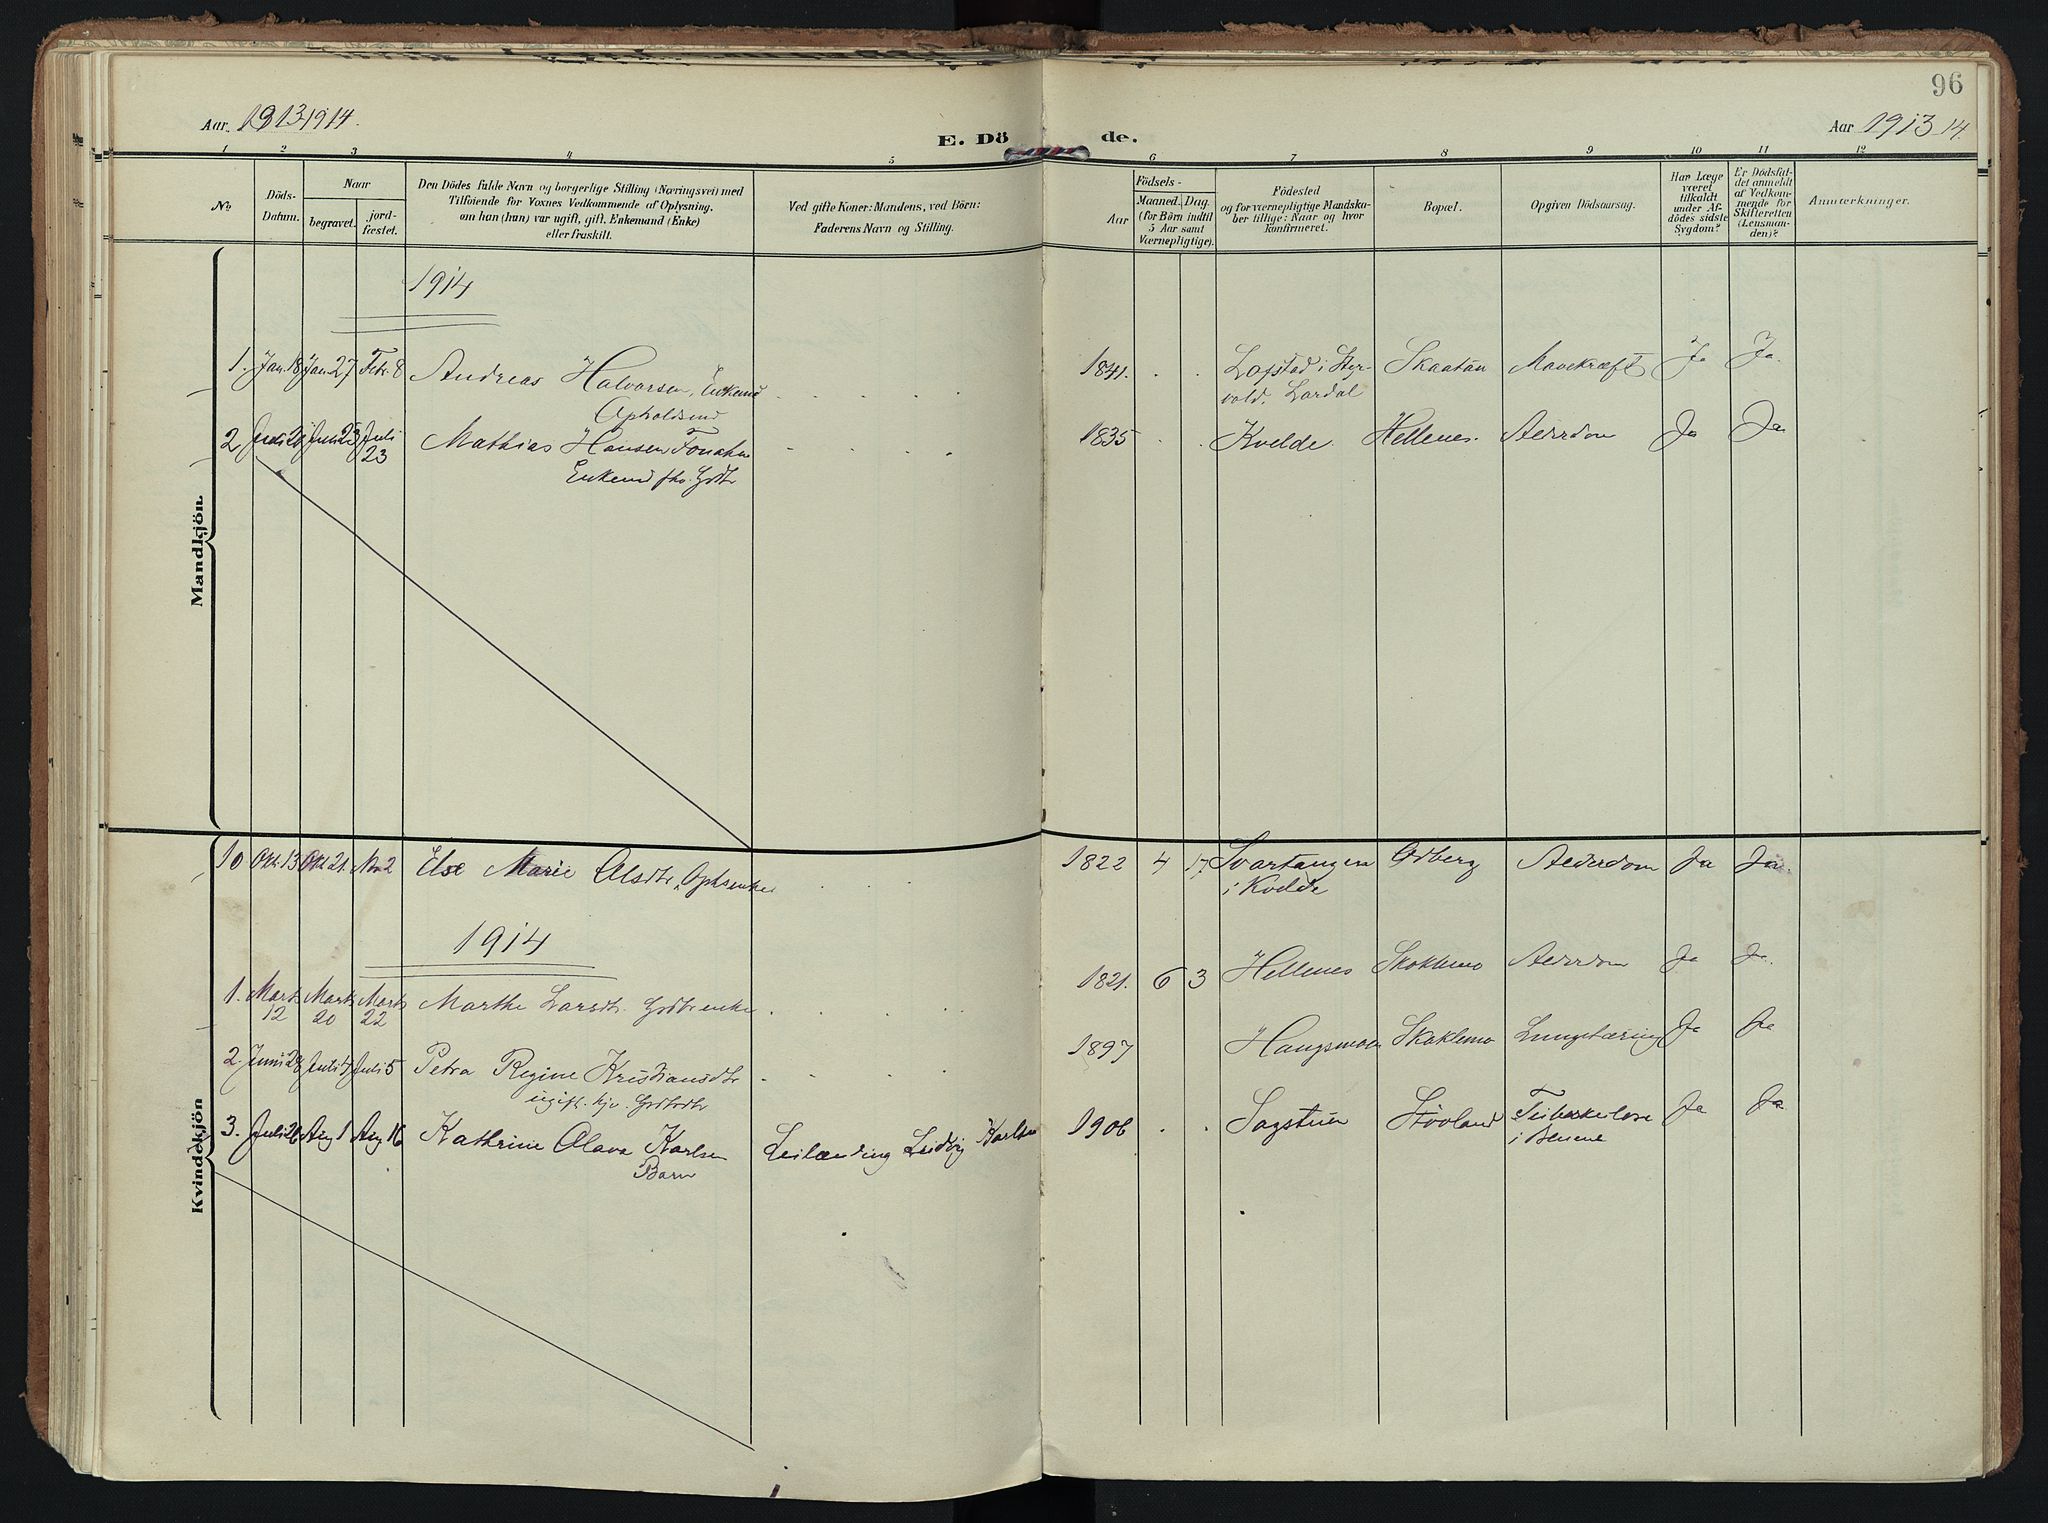 96
Aar. 1913 1914.
E. Dö de.
Aar 1913 14.
1 2 3 4 5 6 7 8 9 10 11 12
No
Döds-Datum.
Naar
begravet.
jord-fæstet.
Den Dödes fulde Navn og borgerlige Stilling (Næringsvei) med
Tilföiende for Voxnes Vedkommende af Oplysning.
om han (hun) var ugift, gift, Enkemand (Enke)
eller fraskilt.
Ved gifte Koner: Mandens, ved Börn:
Faderens Navn og Stilling.
Födsels-
Aar
Maaned. Dag.
(for Börn indtil
5 Aar samt
Værnepligtige).
Födested
og for værnepligtige Mandska-
ber tillige: Naar og hvor
konfirmeret.
Bopæl.
Opgiven Dödsaarsag.
Har Læge
været
tilkaldt
under Af-
dödes sidste
Sygdom?
Er Dödsfal-
det anmeldt
af Vedkom-
mende for
Skifteretten
(Lensman-
den)?
Anmærkninger.
Mandkjön.
1914
1. Jan. 18 Jan 27 Febr. 8 Andreas Halvorsen, Enkemd 1841. Skaatan Mavekræft Ja Ja.
Lardal
2 Juli Juli Juli 23 Mathias Hansen 1835 Kvelde. Hellenes. Alderdom Ja Ja
Enkemd fhv. Grdbr
Kvindekjön
10 Okt. 13 Okt 21. Nov 2 Else Marie Olsdtr. 1822 4 17. Svartangen Odberg Alderdom Ja Ja.
i Kvelde
1914
1. Marts 12 Marts 20 Marts 22 Marthe Larsdtr. Grdbrenke 1821. 6 3 Hellenes Skoklemo Alderdom Ja Ja.
2. Juni 28 Juli 4 Juli 5 Petra Regine Kristiansdtr 1897 Haugsmoen Skoklemo Lungetæring Ja Ja
ugift.
3. Juli 26 Aug 1 Aug 16 Kathrine Olava Karlsen Leilænding Ludvig Karlsen 1906 Sagstuen Stövland Tuberkulose Ja Ja
Barn i Benene